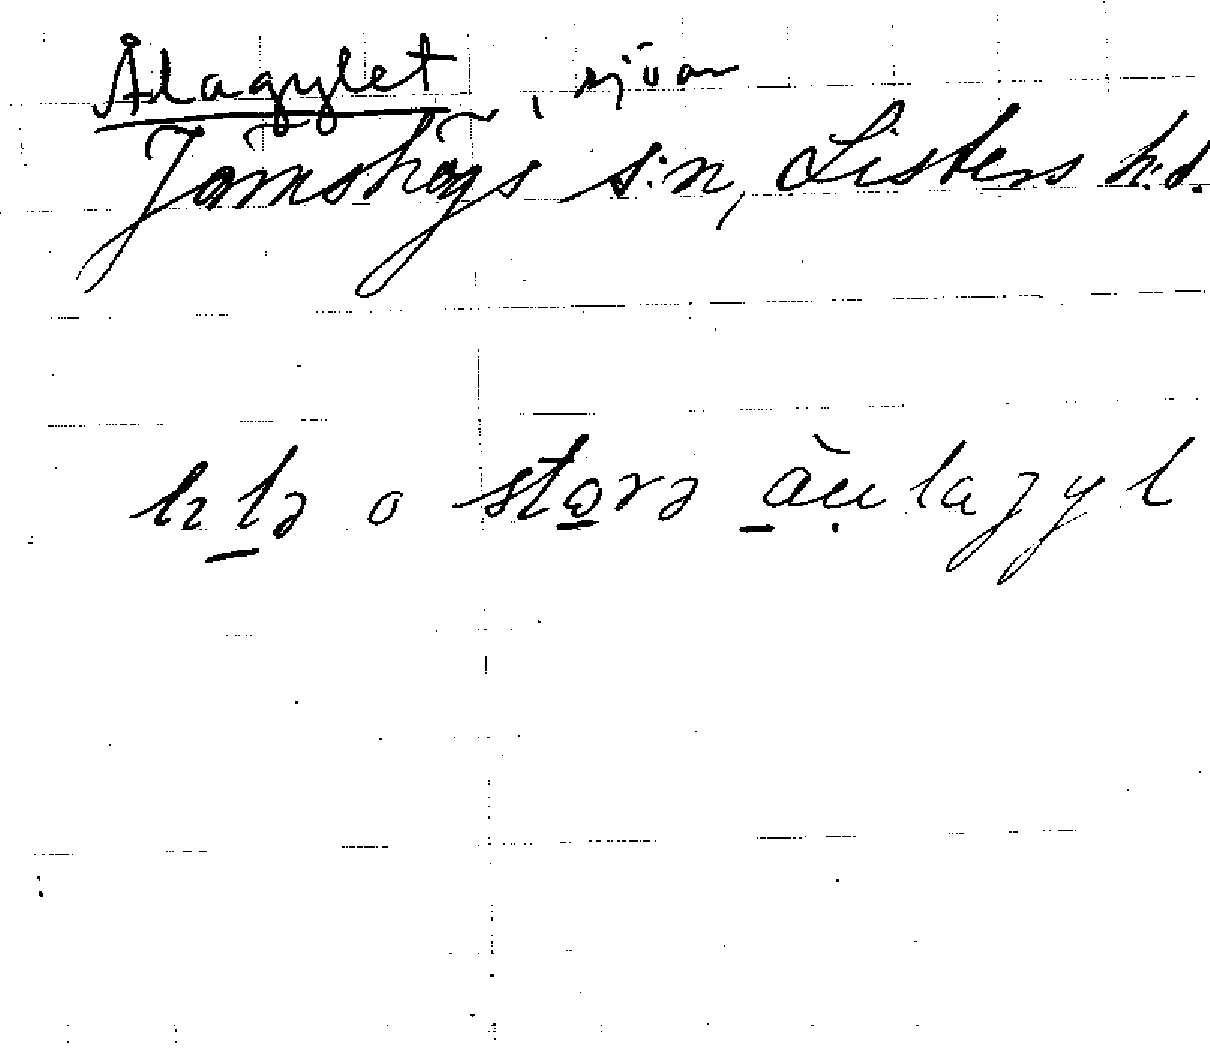 Ålagylet, sjöar
Jämshögs s:n, Listers h.d.
lılə o stora åu̩lagyl